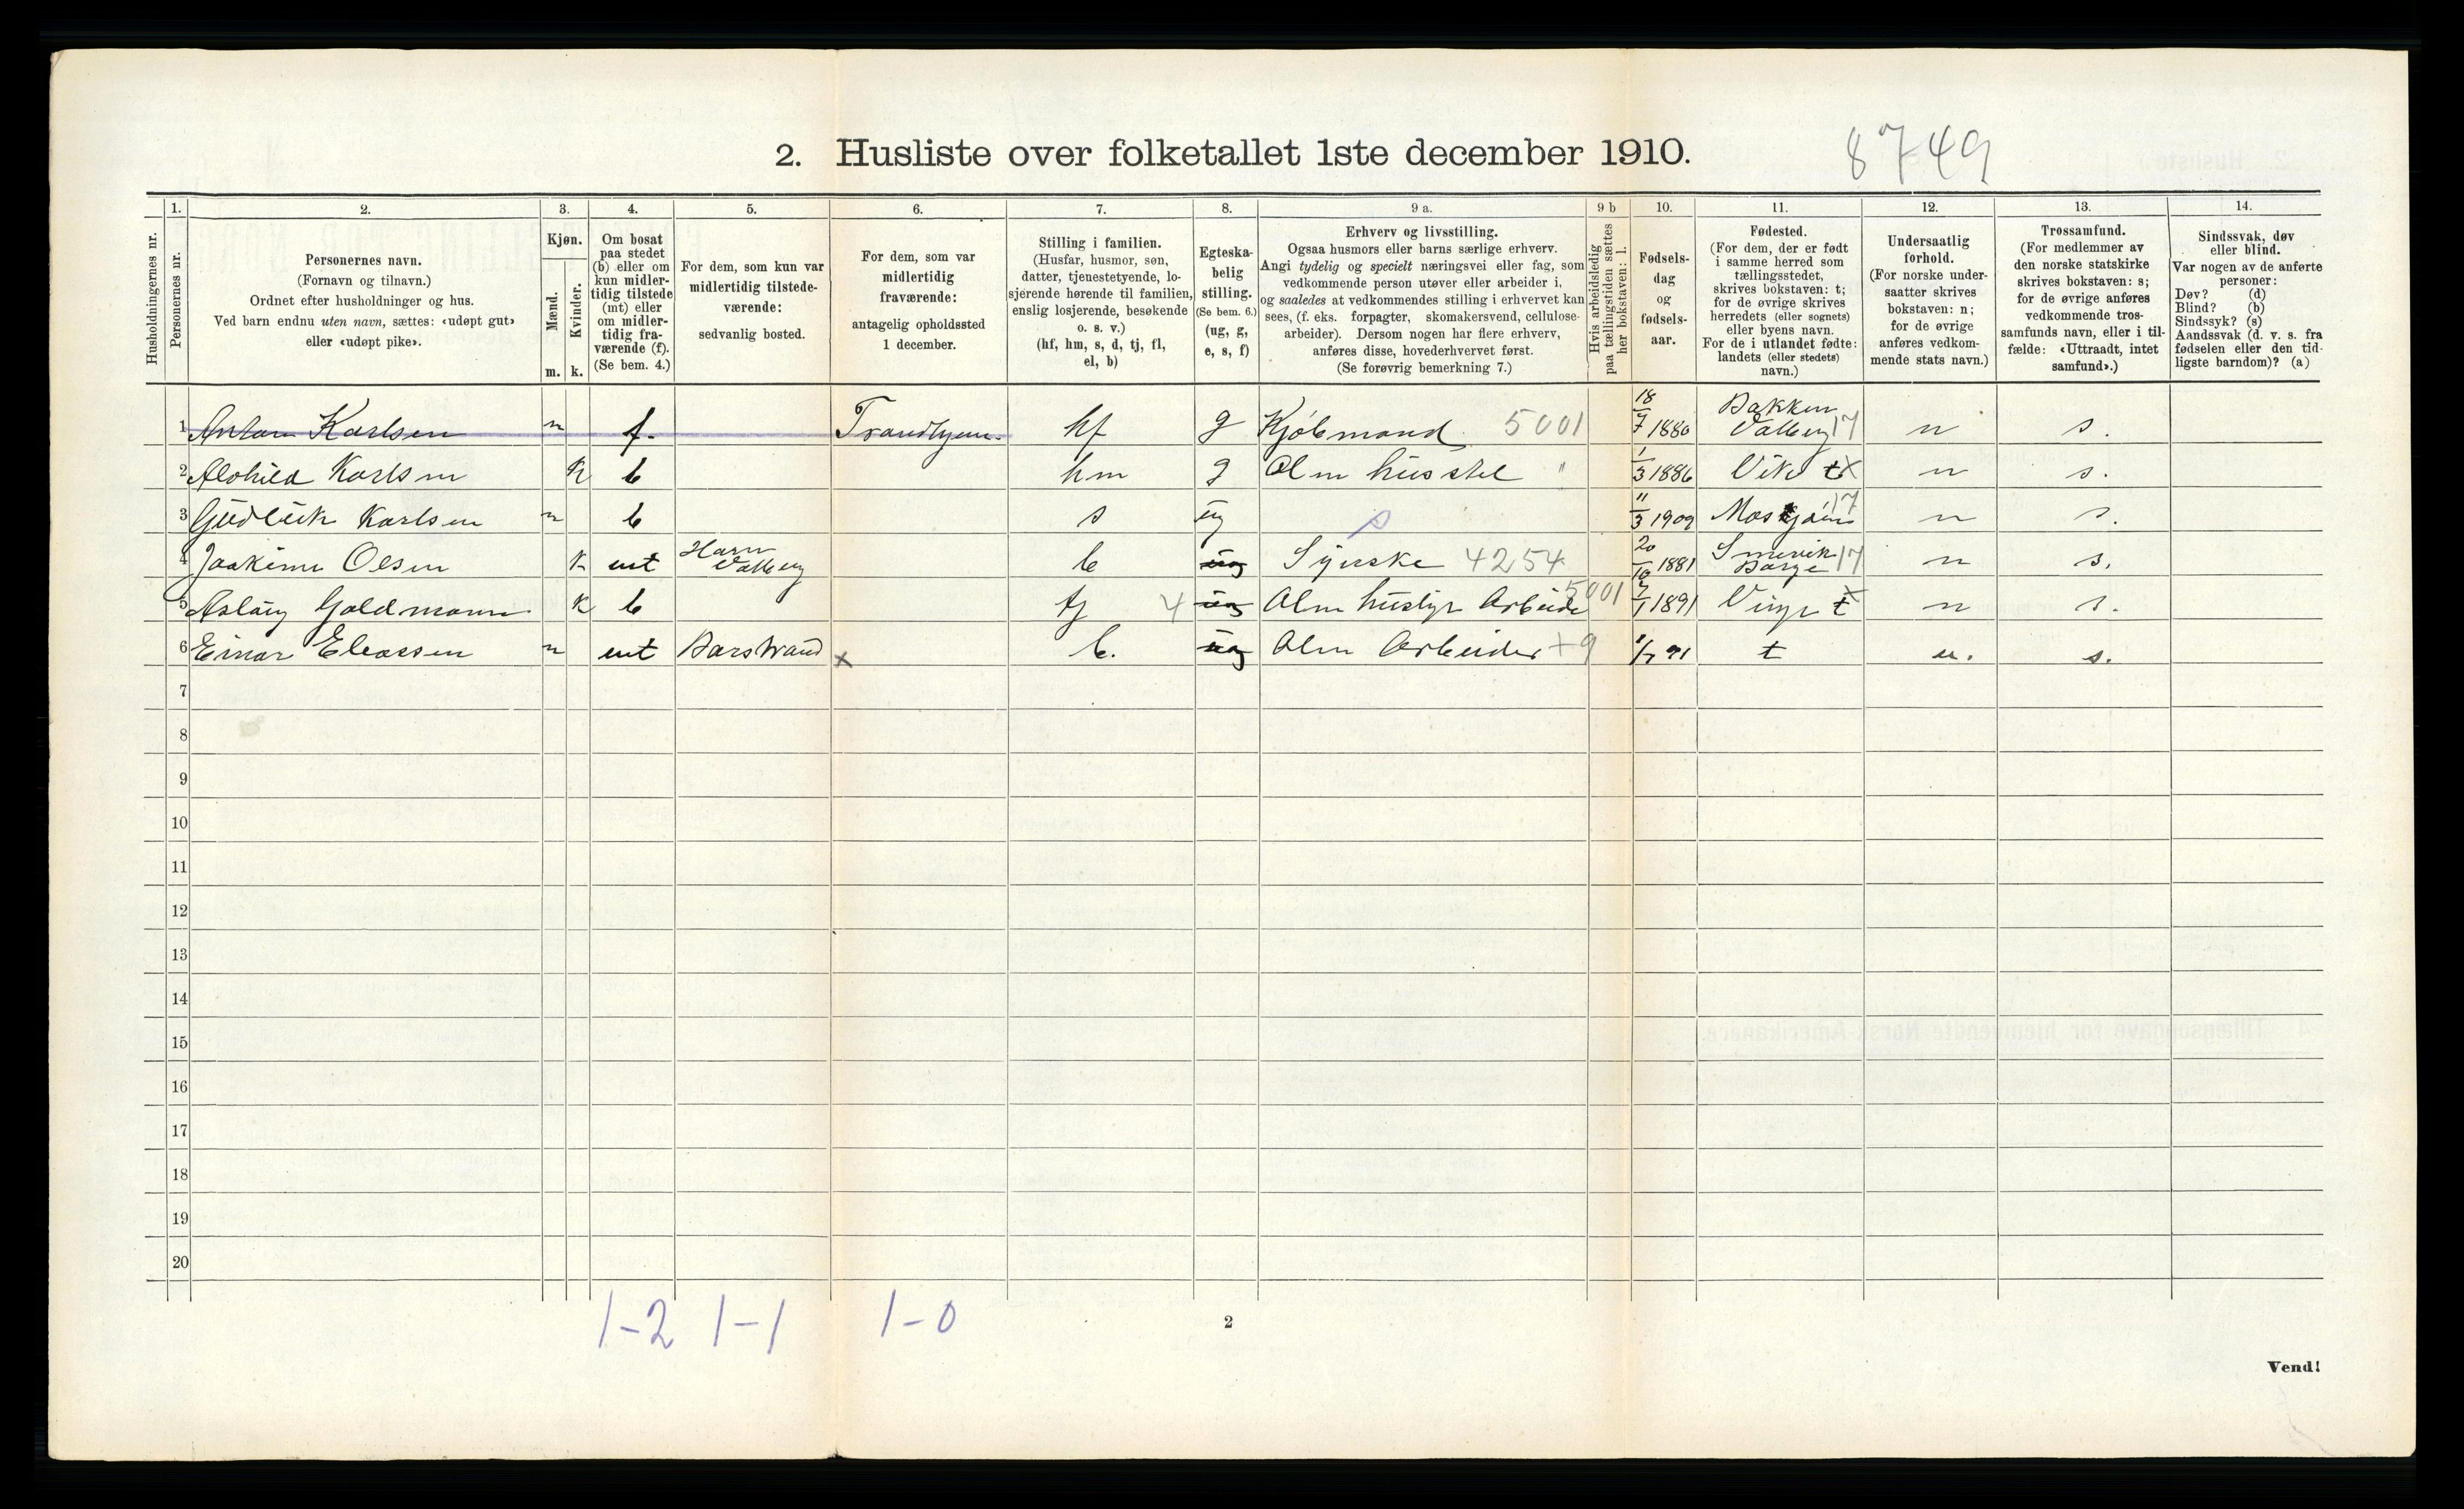 2. Husliste over folketallet 1ste december 1910.
8749
Husholdningernes nr.
1.
Personernes nr.
2.
Personernes navn.
(Fornavn og tilnavn.)
Ordnet efter husholdninger og hus.
Ved barn endnu uten navn, sættes: «udøpt gut»
eller «udøpt pike».
3.
Kjøn.
Mænd.
Kvinder.
m. k.
4.
Om bosat
paa stedet
(b) eller om
kun midler-
tidig tilstede
(mt) eller
om midler-
tidig fra-
værende (f).
(Se bem. 4.)
5.
For dem, som kun var
midlertidig tilstede-
værende:
sedvanlig bosted.
6.
For dem, som var
midlertidig
fraværende:
antagelig opholdssted
1 december.
7.
Stilling i familien.
(Husfar, husmor, søn,
datter, tjenestetyende, lo-
sjerende hørende til familien,
enslig losjerende, besøkende
o. s. v.)
(hf, hm, s, d, tj, fl,
el, b)
8.
Egteska-
belig
stilling.
(Se bem. 6.)
(ug, g,
e, s, f)
9 a.
Erhverv og livsstilling.
Ogsaa husmors eller barns særlige erhverv.
Angi tydelig og specielt næringsvei eller fag, som
vedkommende person utøver eller arbeider i,
og saaledes at vedkommendes stilling i erhvervet kan
sees, (f. eks. forpagter, skomakersvend, cellulose-
arbeider). Dersom nogen har flere erhverv,
anføres disse, hovederhvervet først.
(Se forøvrig bemerkning 7.)
9 b
Hvis arbeidsledig
paa tællingstiden sættes
her bokstaven: l.
10.
Fødsels-
dag
og
fødsels-
aar.
11.
Fødested.
(For dem, der er født
i samme herred som
tællingsstedet,
skrives bokstaven: t;
for de øvrige skrives
herredets (eller sognets)
eller byens navn.
For de i utlandet fødte:
landets (eller stedets)
navn.)
12.
Undersaatlig
forhold.
(For norske under-
saatter skrives
bokstaven: n;
for de øvrige
anføres vedkom-
mende stats navn.)
13.
Trossamfund.
(For medlemmer av
den norske statskirke
skrives bokstaven: s;
for de øvrige anføres
vedkommende tros-
samfunds navn, eller i til-
fælde: «Uttraadt, intet
samfund».)
14.
Sindssvak, døv
eller blind.
Var nogen av de anførte
personer:
Døv? (d)
Blind? (b)
Sindssyk? (s)
Aandssvak (d. v. s. fra
fødselen eller den tid-
ligste barndom)? (a)
1 Anton Karlsen m f. Trondhjem. hf g Kjøbmand 5001 18/7 1880 Bakken Valberg 17 n s.
2 Karlsen k b hm g Alm husstel " 1/3 1886 Vik t x n s.
3 Karlsen m b s ug s 11/3 1909 17 n s.
4 Olsen k mt Valberg b ug Syerske 4254 20/10 1881 17 n s.
5 Aslaug Goldmann k b tj 4 ug Alm huslige Arbeide 5001 7/1 1891 t x n s.
6 Einar Eleassen m mt Borstrand x b. ug Alm Arbeider +9 91 t n. s.
7
8
9
10
11
12
13
14
15
16
17
18
19
20
1-2 1-1 1-0
2
Vend!